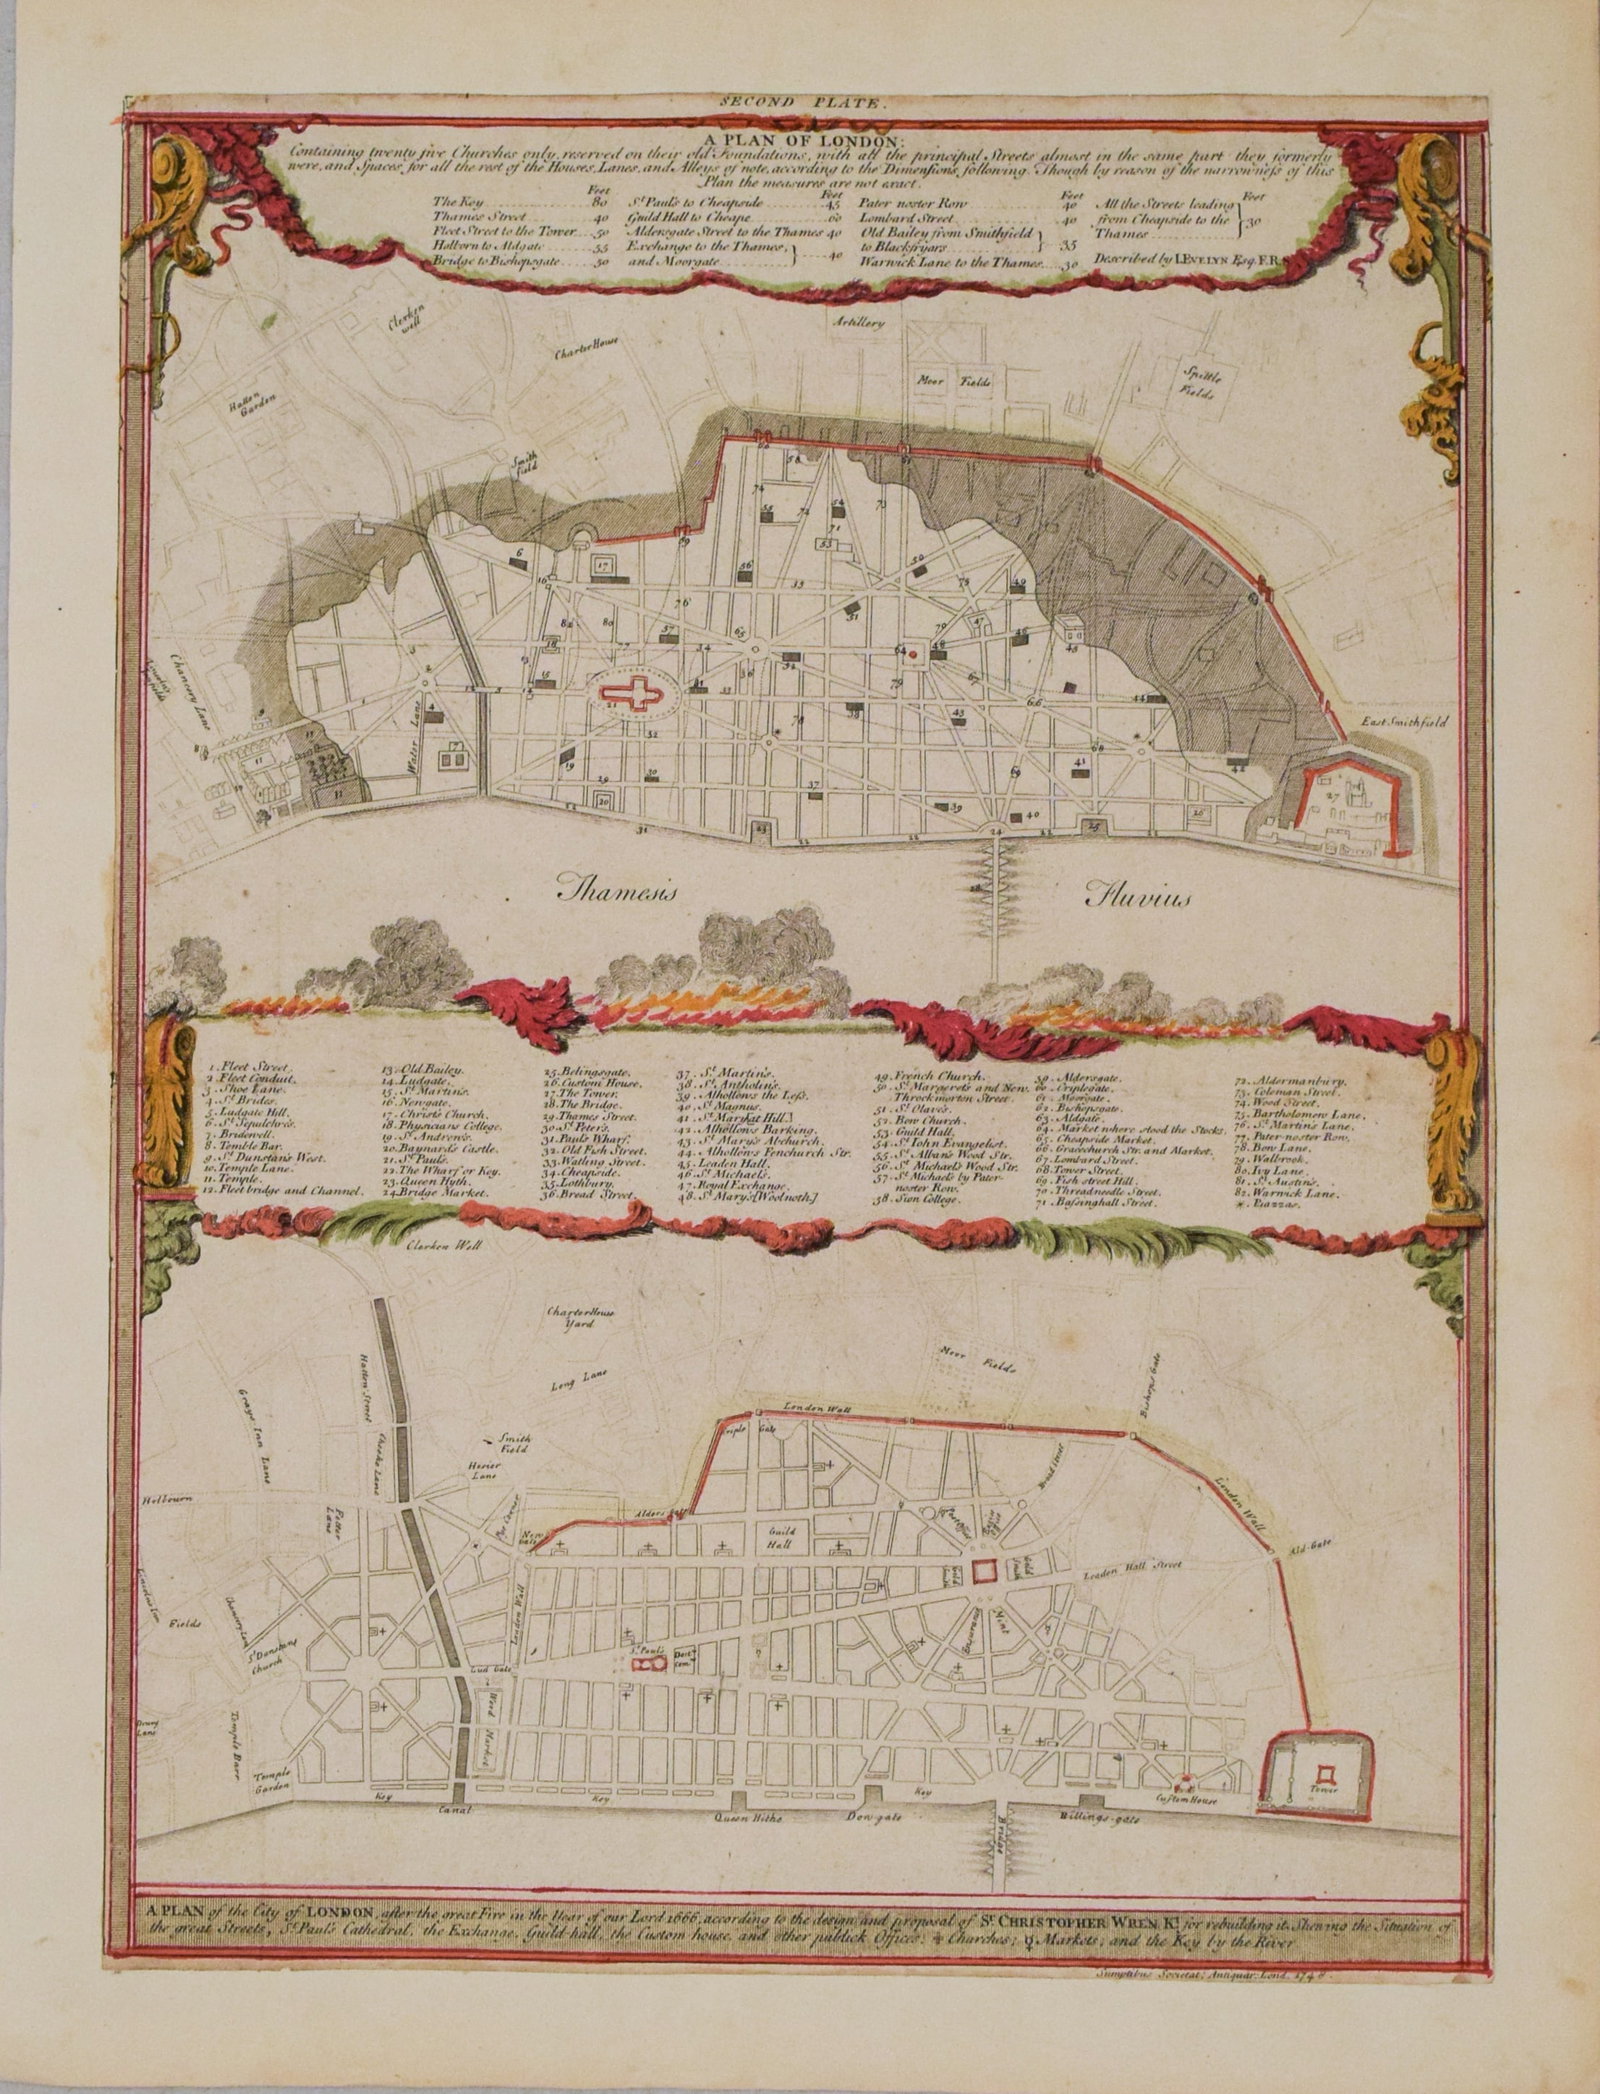 SECOND PLATE.
A PLAN OF LONDON:
Containing twenty five Churches only, reserved on their old Foundations, with all the principal Streets almost in the same part they formerly
were, and Spaces for all the rest of the Houses, Lanes, and Alleys of note, according to the Dimensions following. Though by reason of the narrowness of this
Plan the measures are not exact.
Feet
The Key 80
Thames Street 40
Fleet Street to the Tower 50
Holborn to Aldgate 55
Bridge to Bishopsgate 50
Feet
St. Paul's to Cheapside 45
Guild Hall to Cheape 60
Aldersgate Street to the Thames 40
Exchange to the Thames,
and Moorgate 40
Feet
Pater noster Row 40
Lombard Street 40
Old Bailey from Smithfield
to Blackfryars 35
Warwick Lane to the Thames 30
Feet
All the Streets leading
from Cheapside to the
Thames 30
Described by I. EVELYN Esq. F.R.S
Clerken
well
Charter House
Artillery
Hatton
Garden
Moor Fields
Spittle
Fields
Smith
field
Chancery Lane
Water Lane
East Smithfield
Thamesis Fluvius
1. Fleet Street.
2. Fleet Conduit.
3. Shoe Lane.
4. St. Brides.
5. Ludgate Hill.
6. St. Sepulchres.
7. Bridewell.
8. Temble Bar.
9. St. Dunstan's West.
10. Temple Lane.
11. Temple.
12. Fleet bridge and Channel.
13. Old Bailey.
14. Ludgate.
15. St. Martins.
16. Newgate.
17. Christ's Church.
18. Physicians College.
19. St. Andrew's.
20. Baynard's Castle.
21. St. Pauls.
22. The Wharf or Key.
23. Queen Hyth.
24. Bridge Market.
25. Belingsgate.
26. Custom House.
27. The Tower.
28. The Bridge.
29. Thames Street.
30. St. Peter's.
31. Paul's Wharf.
32. Old Fish Street.
33. Watling Street.
34. Cheapside.
35. Lothbury.
36. Bread Street.
37. St. Martin's.
38. St. Antholin's.
39. Alhollows the Less.
40. St. Magnus.
41. St. Mary[at Hill.]
42. Alhollows Barking.
43. St. Mary's Abchurch.
44. Alhollows Fenchurch Str.
45. Leaden Hall.
46. St. Michael's.
47. Royal Exchange.
48. St. Mary's[Woolnoth.]
49. French Church.
50. St. Margeret's and New.
Throckmorton Street.
51. St. Olave's.
52. Bow Church.
53. Guild Hall.
54. St. Iohn Evangelist.
55. St. Alban's Wood Str.
56. St. Michael's Wood Str.
57. St. Michaels by Pater-
noster Row.
58. Sion College.
59. Aldersgate.
60. Criplegate.
61. Moorgate.
62. Bishopsgate.
63. Aldgate.
64. Market where stood the Stocks.
65. Cheapside Market.
66. Gracechurch Str. and Market.
67. Lombard Street.
68. Tower Street.
69. Fish street Hill.
70. Threadneedle Street.
71. Bassinghall Street.
72. Aldermanbury.
73. Coleman Street.
74. Wood Street.
75. Bartholomew Lane.
76. St. Martin's Lane.
77. Pater-noster Row.
78. Bow Lane.
79. Walbrook.
80. Ivy Lane.
81. St. Austin's.
82. Warwick Lane.
*. Piazzas.
Clerken Well
Charter House
Yard
Long Lane
Moor Fields
Bishops Gate
Hatton Street
Grays Inn Lane
London Wall
Criple Gate
Smith
Field
Hosier
Lane
Cheeke Lane
Holbourn
Fetter
Lane
Pye Corner
New
Gate
Alders Gate
Broad Street
London Wall
Guild
Hall
Post Office
Excise Office
Ald-Gate
Gold
Smith
Gold
Smith
Leaden Hall Street
Fields
Chancery Lane
London Wall
St. Dunstans
Church
Insurance
Mint
St. Paul's
Doct.
Com.
Lud Gate
Drury
Lane
Wood Market
Temple Barr
Temple
Garden
Key
Canal
Key
Queen Hithe
Dowgate
Key
Bridge
Billings-gate
Custom House
Tower
A PLAN of the City of LONDON, after the great Fire in the Year of our Lord 1666, according to the design and proposal of Sr. CHRISTOPHER WREN, Kt. for rebuilding it. Shewing the Situation of
the great Streets, St. Paul's Cathedral, the Exchange, Guild-hall, the Custom house, and other publick Offices; + Churches; ♀ Markets; and the Key by the River
Sumptibus Societat: Antiquar. Lond. 1748.